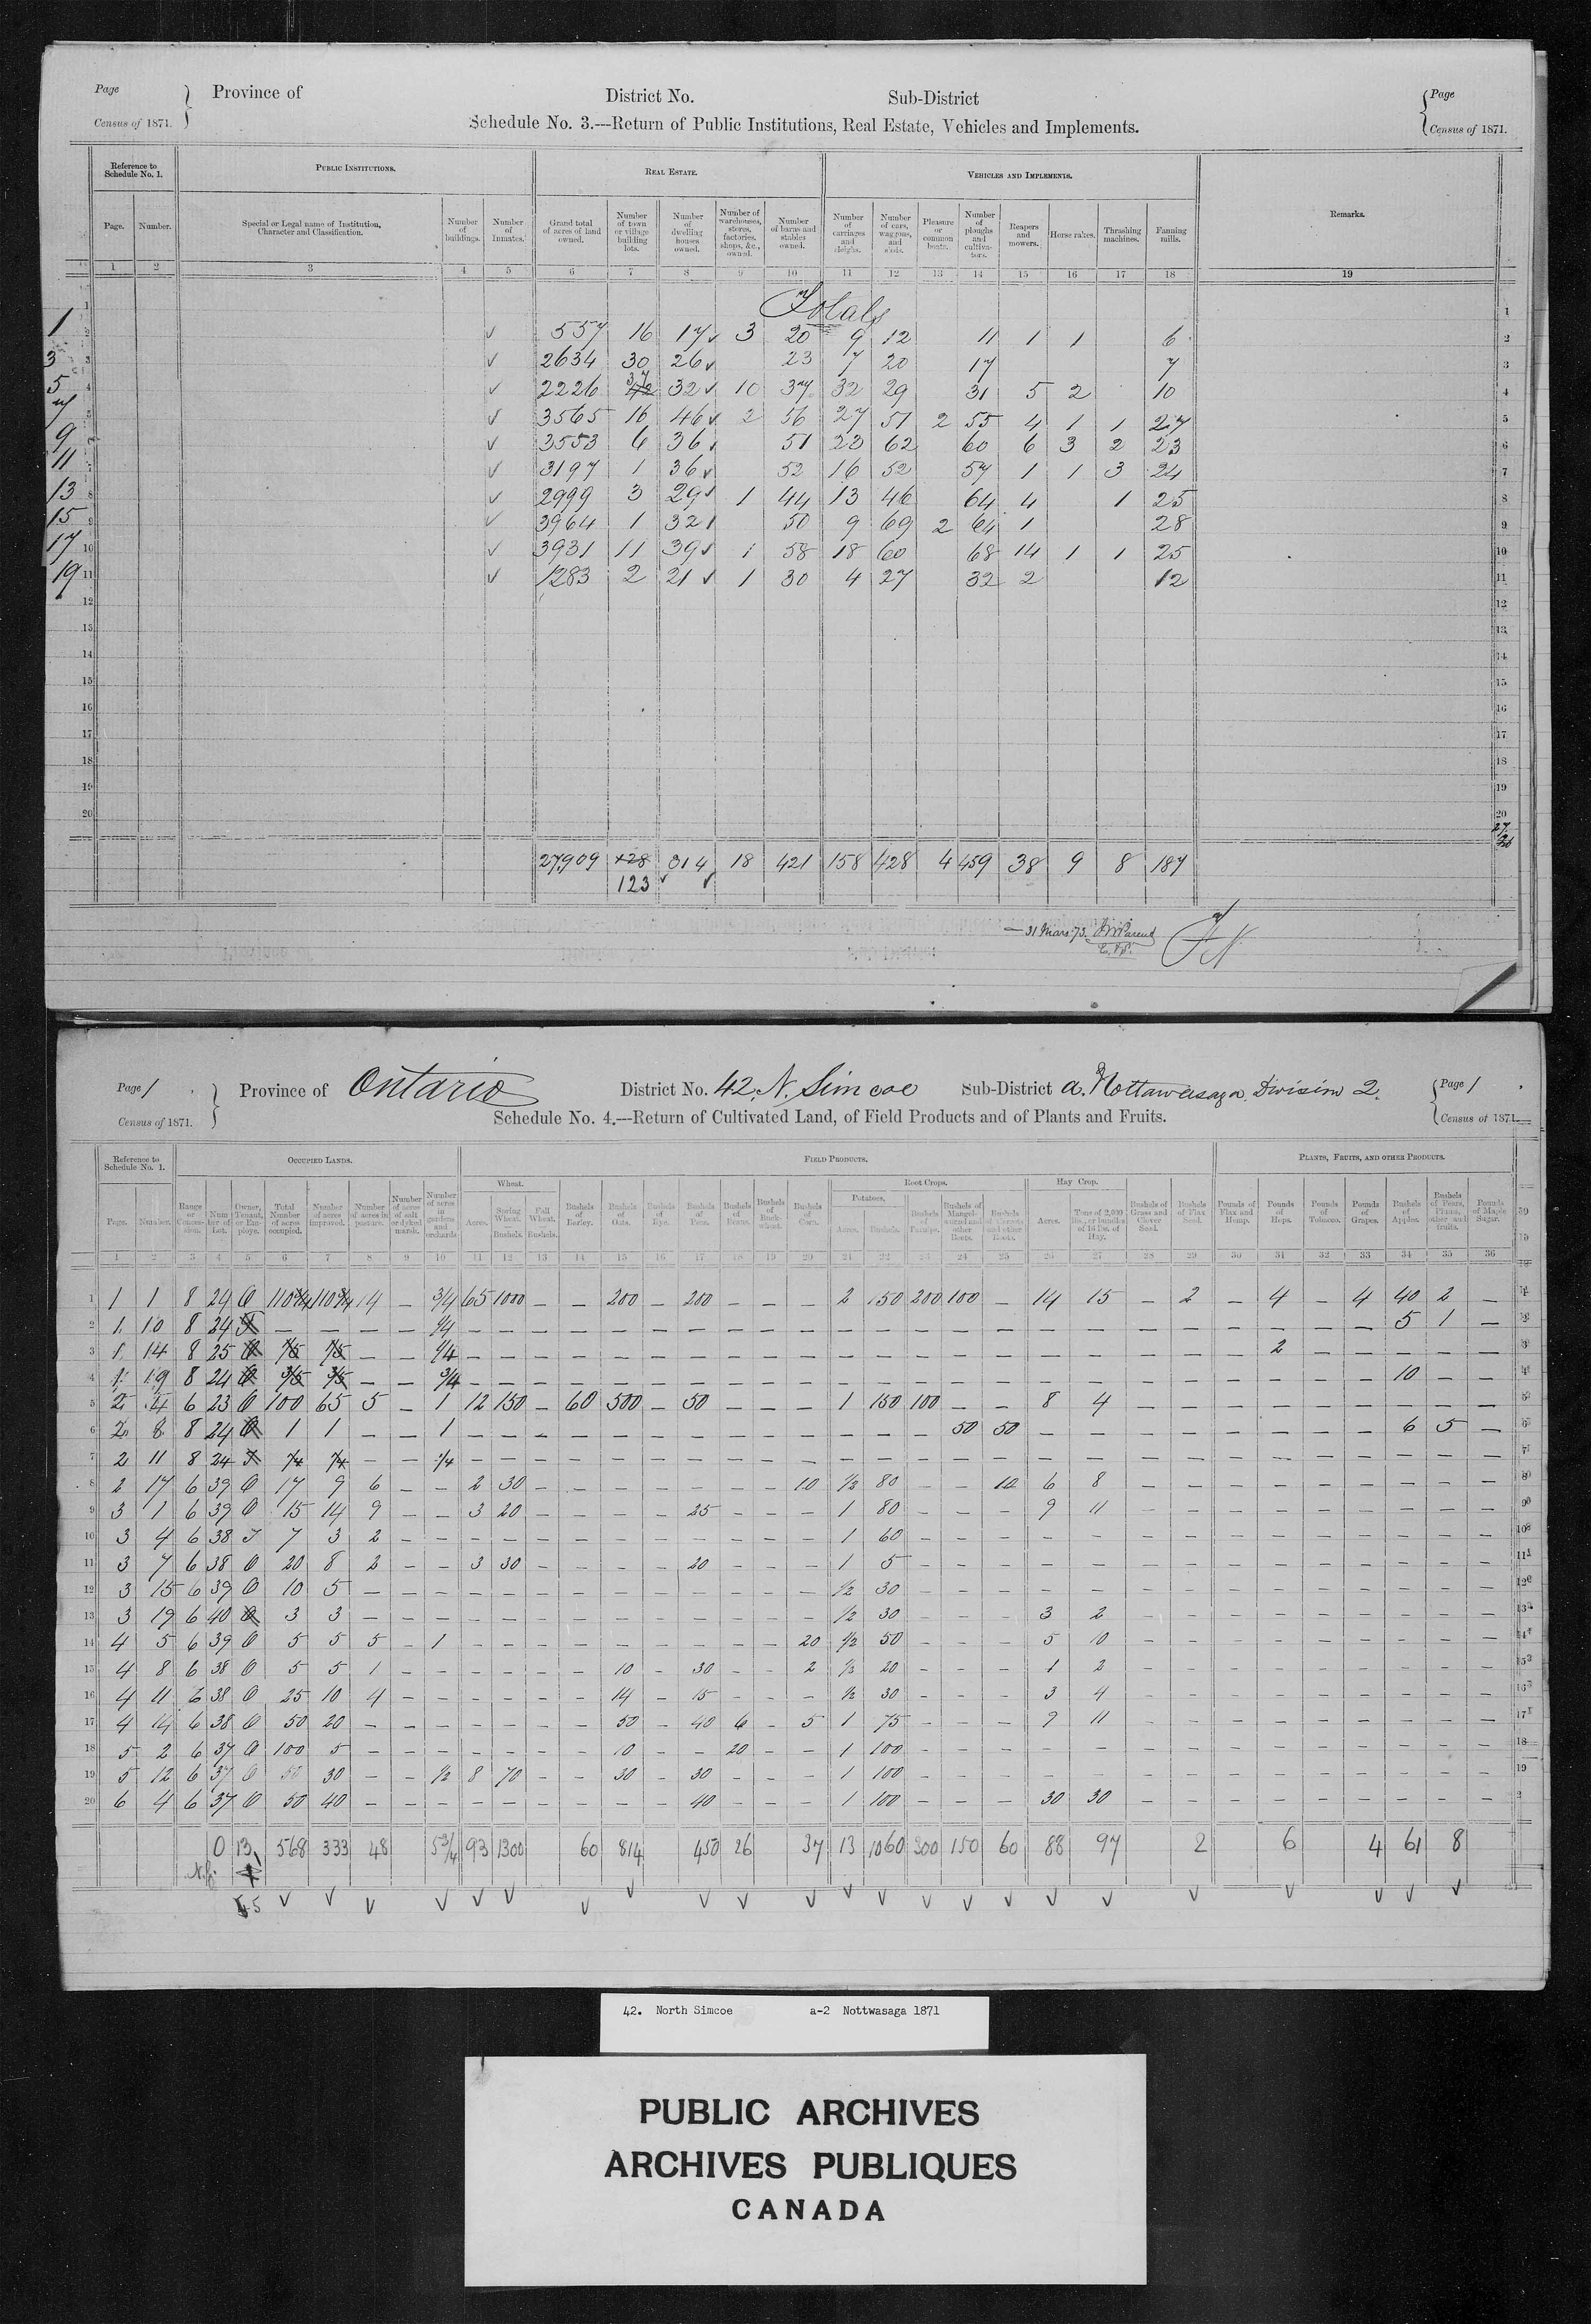 Page
Province of
District No.
Sub-District
Page
Census of 1871.
Schedule No. 3.---Return of Public Institutions, Real Estate, Vehicles and Implements.
Census of 1871.
Reference to Schedule No. 1.
PUBLIC INSTITUTIONS.
REAL ESTATE.
VEHICLES AND IMPLEMENTS.
Remarks.
Page. Number. Special or Legal name of Institution, Character and Classification. Number of buildings. Number of Inmates. Grand total of acres of land owned. Number of town or village building lots. Number of dwelling houses owned. Number of warehouses, stores, factories, shops, &c., owned. Number of barns and stables owned. Number of carriages and sleighs. Number of cars, waggons, and sleds. Pleasure or common boats. Number of ploughs and cultivators. Reapers and mowers. Horse rakes. Thrashing machines. Fanning mills.
1 2 3 4 5 6 7 8 9 10 11 12 13 14 15 16 17 18 19
Totals
1 2 ✓ 557 16 17 ✓ 3 20 9 12 11 1 1 6 2
3 3 ✓ 2634 30 26 ✓ 23 7 20 17 7 3
5 4 ✓ 2226 37 32 ✓ 10 37 32 29 31 5 2 10 4
7 5 ✓ 3565 16 46 ✓ 2 56 27 51 2 55 4 1 1 27 5
9 ✓ 3553 6 36 ✓ 51 23 62 60 6 3 2 23 6
11 7 ✓ 3197 1 36 ✓ 52 16 52 57 1 1 3 24 7
13 8 ✓ 2999 3 29 ✓ 1 44 13 46 64 4 1 25 8
15 9 ✓ 3964 1 32 50 9 69 2 64 1 28 9
17 10 ✓ 3931 11 39 ✓ 1 58 18 60 68 14 1 1 25 10
19 11 ✓ 1283 2 21 ✓ 1 30 4 27 32 2 12 11
12 12
13 13
14 14
15 15
16 16
17 17
18 18
19 19
20 20
27,909 128 314 18 421 158 428 4 459 38 9 8 187
123
31 Mars 73.
Page 1
Province of Ontario
District No. 42. N. Simcoe
Sub-District a. Nottawasaga Division 2.
Page 1
Census of 1871.
Schedule No. 4.---Return of Cultivated Land, of Field Products and of Plants and Fruits.
Census of 1871.
Reference to Schedule No. 1.
OCCUPIED LANDS.
FIELD PRODUCTS.
PLANTS, FRUITS, AND OTHER PRODUCTS.
Wheat.
Root Crops.
Hay Crop.
Potatoes.
Page. Number. Range or Concession. Number of Lot. Owner, Tenant, or Employe. Total Number of acres occupied. Number of acres improved. Number of acres in pasture. Number of acres of salt or dyked marsh. Number of acres in gardens and orchards. Acres. Spring Wheat.—Bushels. Fall Wheat.—Bushels. Bushels of Barley. Bushels of Oats. Bushels of Rye. Bushels of Peas. Bushels of Beans. Bushels of Buckwheat. Bushels of Corn. Acres. Bushels. Bushels of Turnips. Bushels of Mangel-wurzel and other Beets. Bushels of Carrots and other Roots. Acres. Tons of 2,000 lbs., or bundles of 16 lbs. of Hay. Bushels of Grass and Clover Seed. Bushels of Flax Seed. Pounds of Flax and Hemp. Pounds of Hops. Pounds of Tobacco. Pounds of Grapes. Bushels of Apples. Bushels of Pears, Plums, other and fruits. Pounds of Maple Sugar.
1 2 3 4 5 6 7 8 9 10 11 12 13 14 15 16 17 18 19 20 21 22 23 24 25 26 27 28 29 30 31 32 33 34 35 36
1 1 1 8 24 O 110 3/4 110 3/4 14 – 3/4 65 1000 – – 200 – 200 – – – 2 150 200 100 – 14 15 – 2 – 4 – 4 40 2 –
2 1 10 8 24 T – – – – 1/4 – – – – – – – – – – – – – – – – – – – – – – – 5 1 –
3 1 14 8 25 O 1/5 1/5 – – 1/4 – – – – – – – – – – – – – – – – – – – – 2 – – – – –
4 1 19 8 24 O 3/5 3/5 – – 3/4 – – – – – – – – – – – – – – – – – – – – – – – 10 – –
5 2 4 6 23 O 100 65 5 – 1 12 150 – 60 500 – 50 – – – 1 150 100 – – 8 4 – – – – – – – – –
6 2 8 8 24 O 1 1 – – 1 – – – – – – – – – – – – – 50 50 – – – – – – – – 6 5 –
7 2 11 8 24 T 1/4 1/4 – – 1/4 – – – – – – – – – – – – – – – – – – – – – – – – – –
8 2 17 6 39 O 17 9 6 – – 2 30 – – – – – – – 10 1/2 80 – – 10 6 8 – – – – – – – – –
9 3 1 6 39 O 15 14 9 – – 3 20 – – – – 25 – – – 1 80 – – – 9 11 – – – – – – – – –
10 3 4 6 38 T 7 3 2 – – – – – – – – – – – – 1 60 – – – – – – – – – – – – – –
11 3 7 6 38 O 20 8 2 – – 3 30 – – – – 20 – – – 1 5 – – – – – – – – – – – – – –
12 3 15 6 39 O 10 5 – – – – – – – – – – – – – 1/2 30 – – – – – – – – – – – – – –
13 3 19 6 40 O 3 3 – – – – – – – – – – – – – 1/2 30 – – – 3 2 – – – – – – – – –
14 4 5 6 39 O 5 5 5 – 1 – – – – – – – – – 20 1/2 50 – – – 5 10 – – – – – – – – –
15 4 8 6 38 O 5 5 1 – – – – – – 10 – 30 – – 2 1/2 20 – – – 1 2 – – – – – – – – –
16 4 11 6 38 O 25 10 4 – – – – – – 14 – 15 – – – 1/2 30 – – – 3 4 – – – – – – – – –
17 4 14 6 38 O 50 20 – – – – – – – 50 – 40 6 – 5 1 75 – – – 9 11 – – – – – – – – –
18 5 2 6 37 O 100 5 – – – – – – – 10 – – 20 – – 1 100 – – – – – – – – – – – – – –
19 5 12 6 37 O 50 30 – – 1/2 8 70 – – 30 – 30 – – – 1 100 – – – – – – – – – – – – – –
20 6 4 6 37 O 50 40 – – – – – – – – – 40 – – – 1 100 – – – 30 30 – – – – – – – – –
0 13 568 333 48 5 3/4 93 1300 60 814 450 26 37 13 1060 300 150 60 88 97 2 6 4 61 8
42. North Simcoe a-2 Nottwasaga 1871
PUBLIC ARCHIVES
ARCHIVES PUBLIQUES
CANADA